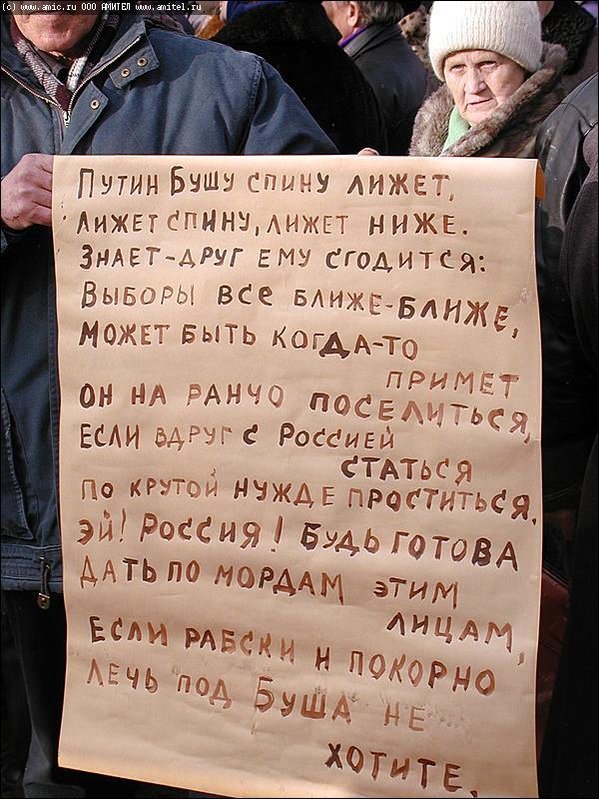 (c) www.amic.ru ООО АМИТЕЛ www.amitel.ru
Путин Бушу спину лижет,
лижет спину, лижет ниже.
Знает-друг ему сгодится:
Выборы все ближе-ближе,
может быть когда-то
примет
он на ранчо поселиться,
если вдруг с Россией
статься
по крутой нужде проститься.
Эй! Россия! Будь готова
дать по мордам этим
лицам,
Если рабски и покорно
лечь под Буша не
хотите.